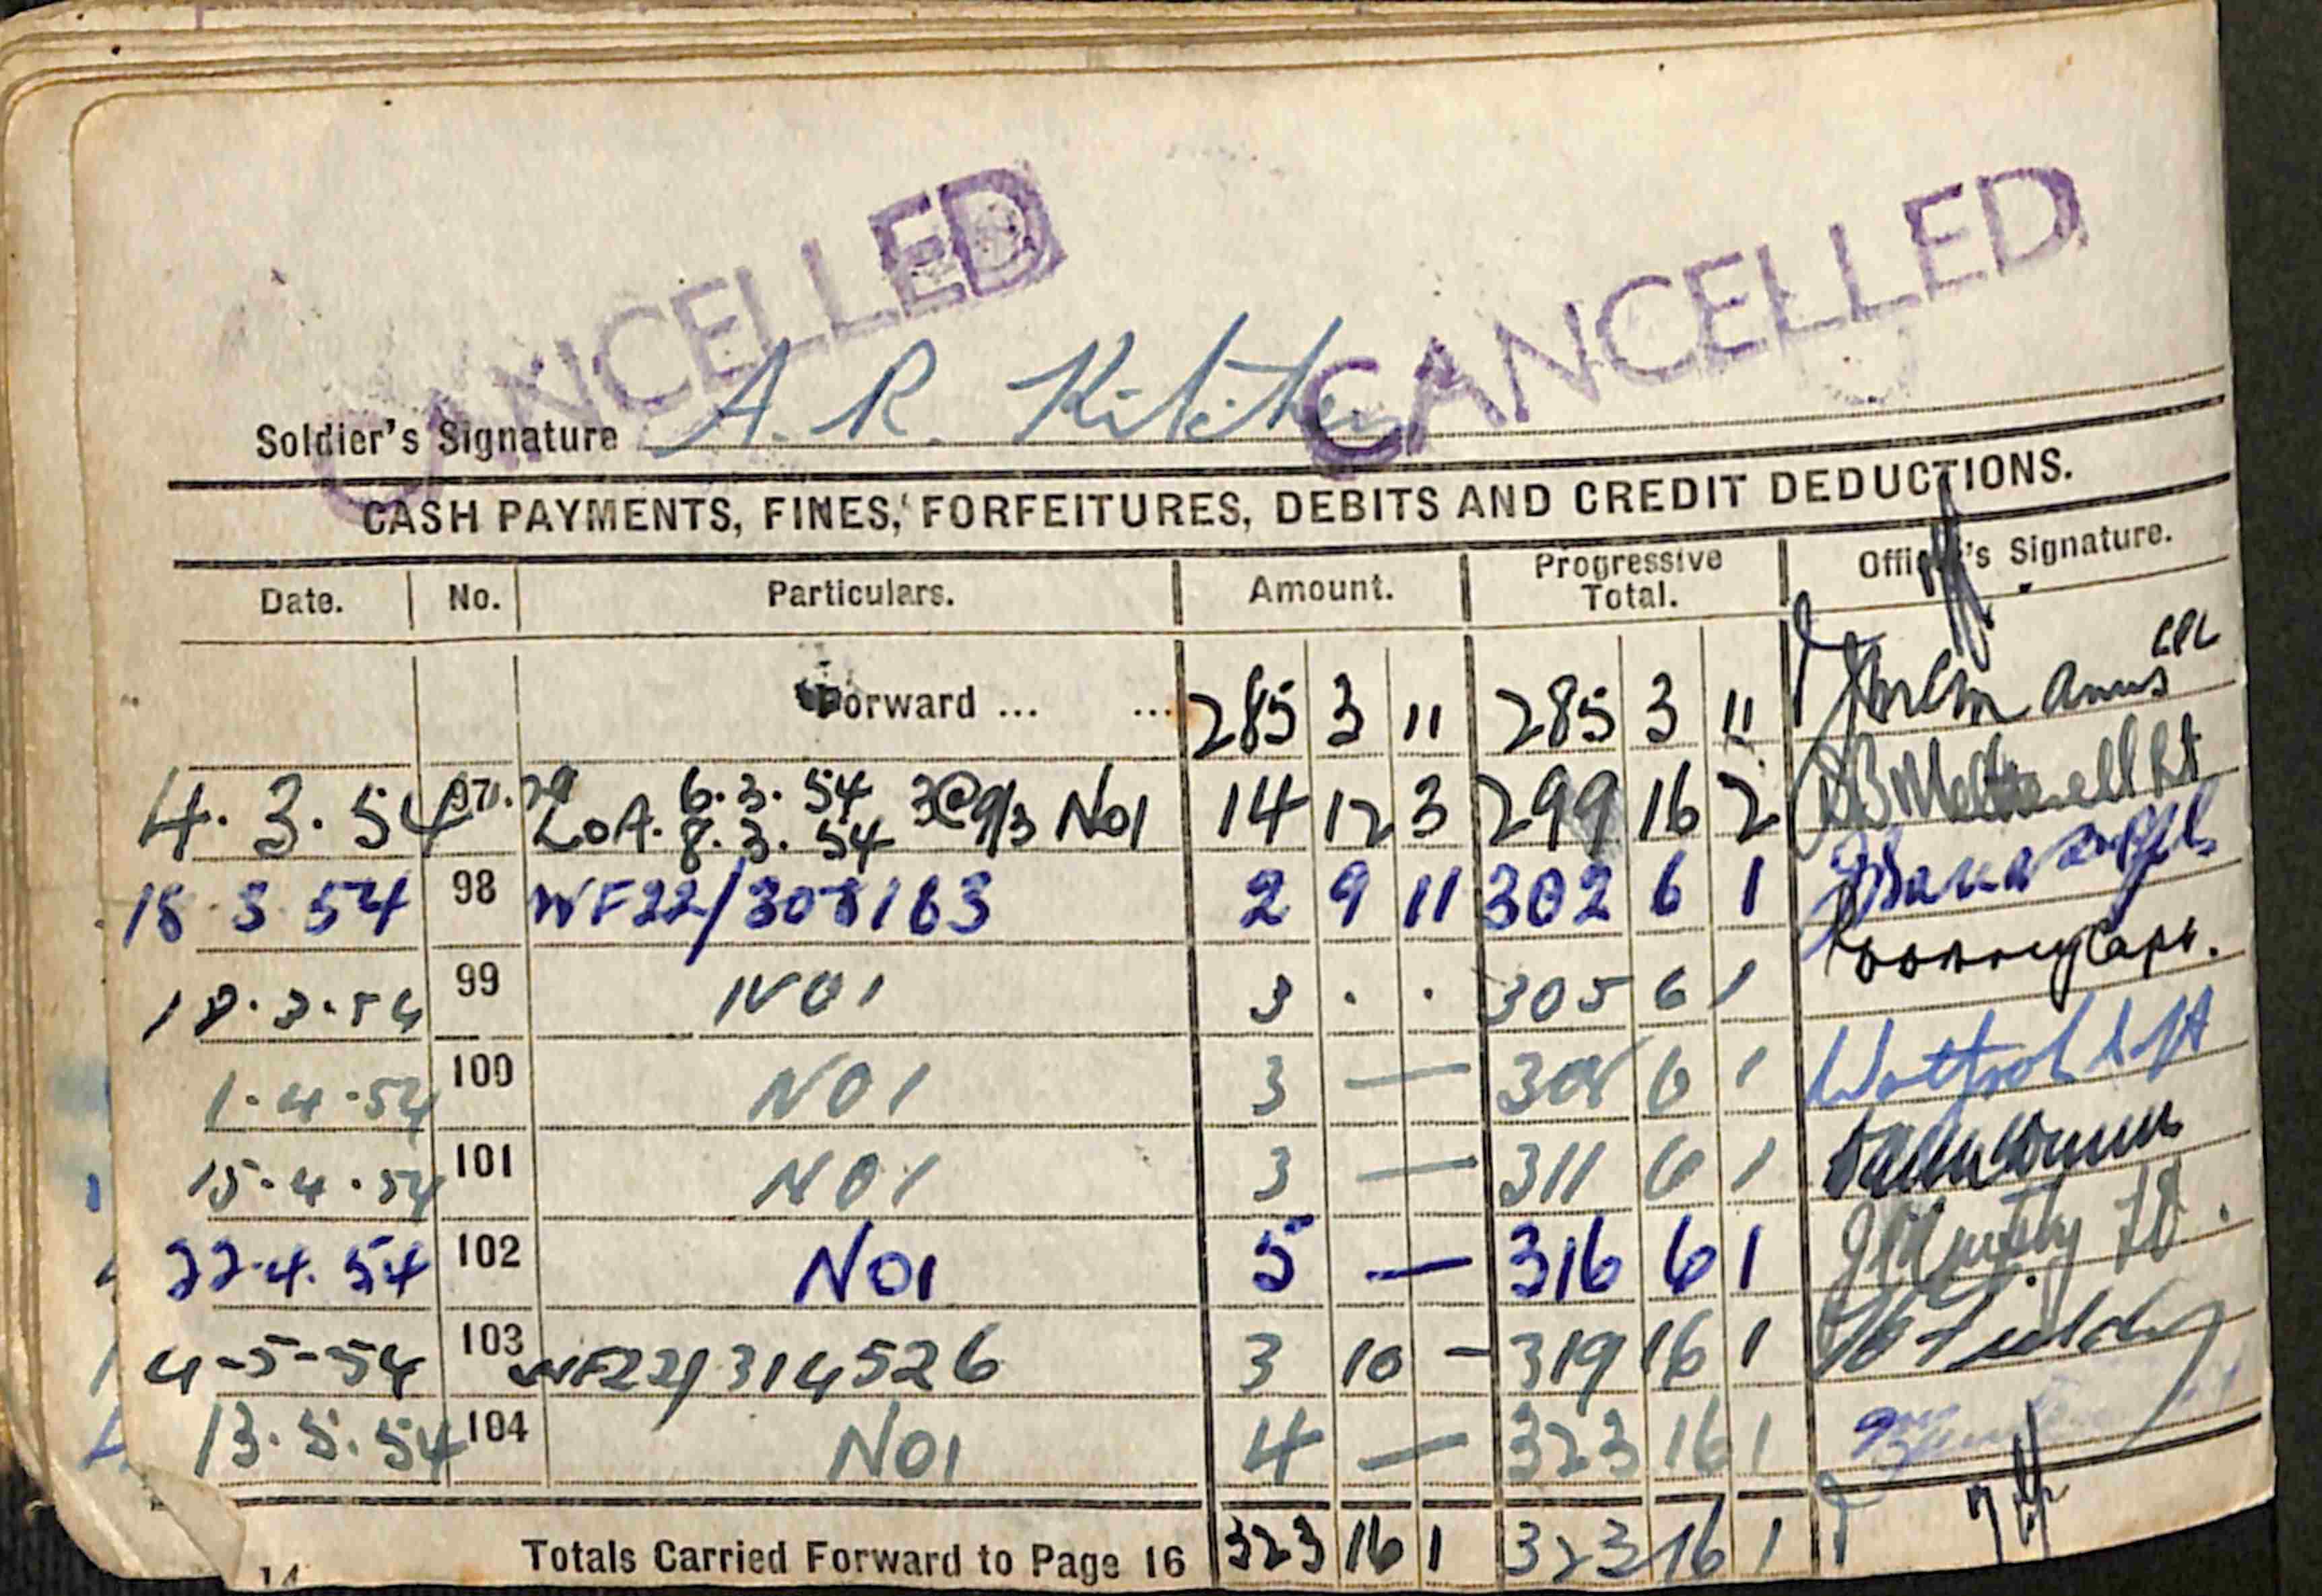 CANCELLED
CANCELLED
Soldier's Signature A. R. Kitchen
CASH PAYMENTS, FINES, FORFEITURES, DEBITS AND CREDIT DEDUCTIONS.
Date. No. Particulars. Amount. Progressive Total. Officer's Signature.
Forward ... ... 285 3 11 285 3 11 CPL
4.3.54 97 LOA. 6.3.54 8.3.54 3@9/3 No1 14 12 3 299 16 2
18.3.54 98 WF22/308163 2 9 11 302 6 1
18.3.54 99 NO1 3 . . 305 6 1 Capt.
1.4.54 100 NO1 3 — 308 6 1
15.4.54 101 NO1 3 — 311 6 1
22.4.54 102 NO1 5 — 316 6 1
4-5-54 103 WF22/314526 3 10 - 319 16 1
13.5.54 104 NO1 4 — 323 16 1
Totals Carried Forward to Page 16 323 16 1 323 16 1
14